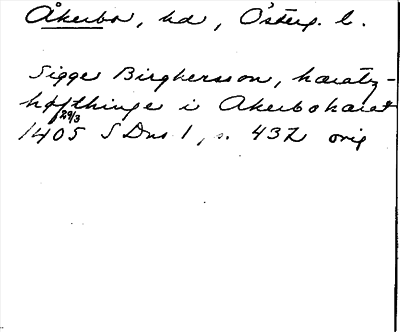 Åkerbo, hd, Österg. l.
Sigge Birghersson, hæratz-
høfthinge i Akerbohærat
29/3
1405 SDns 1, s. 432 orig